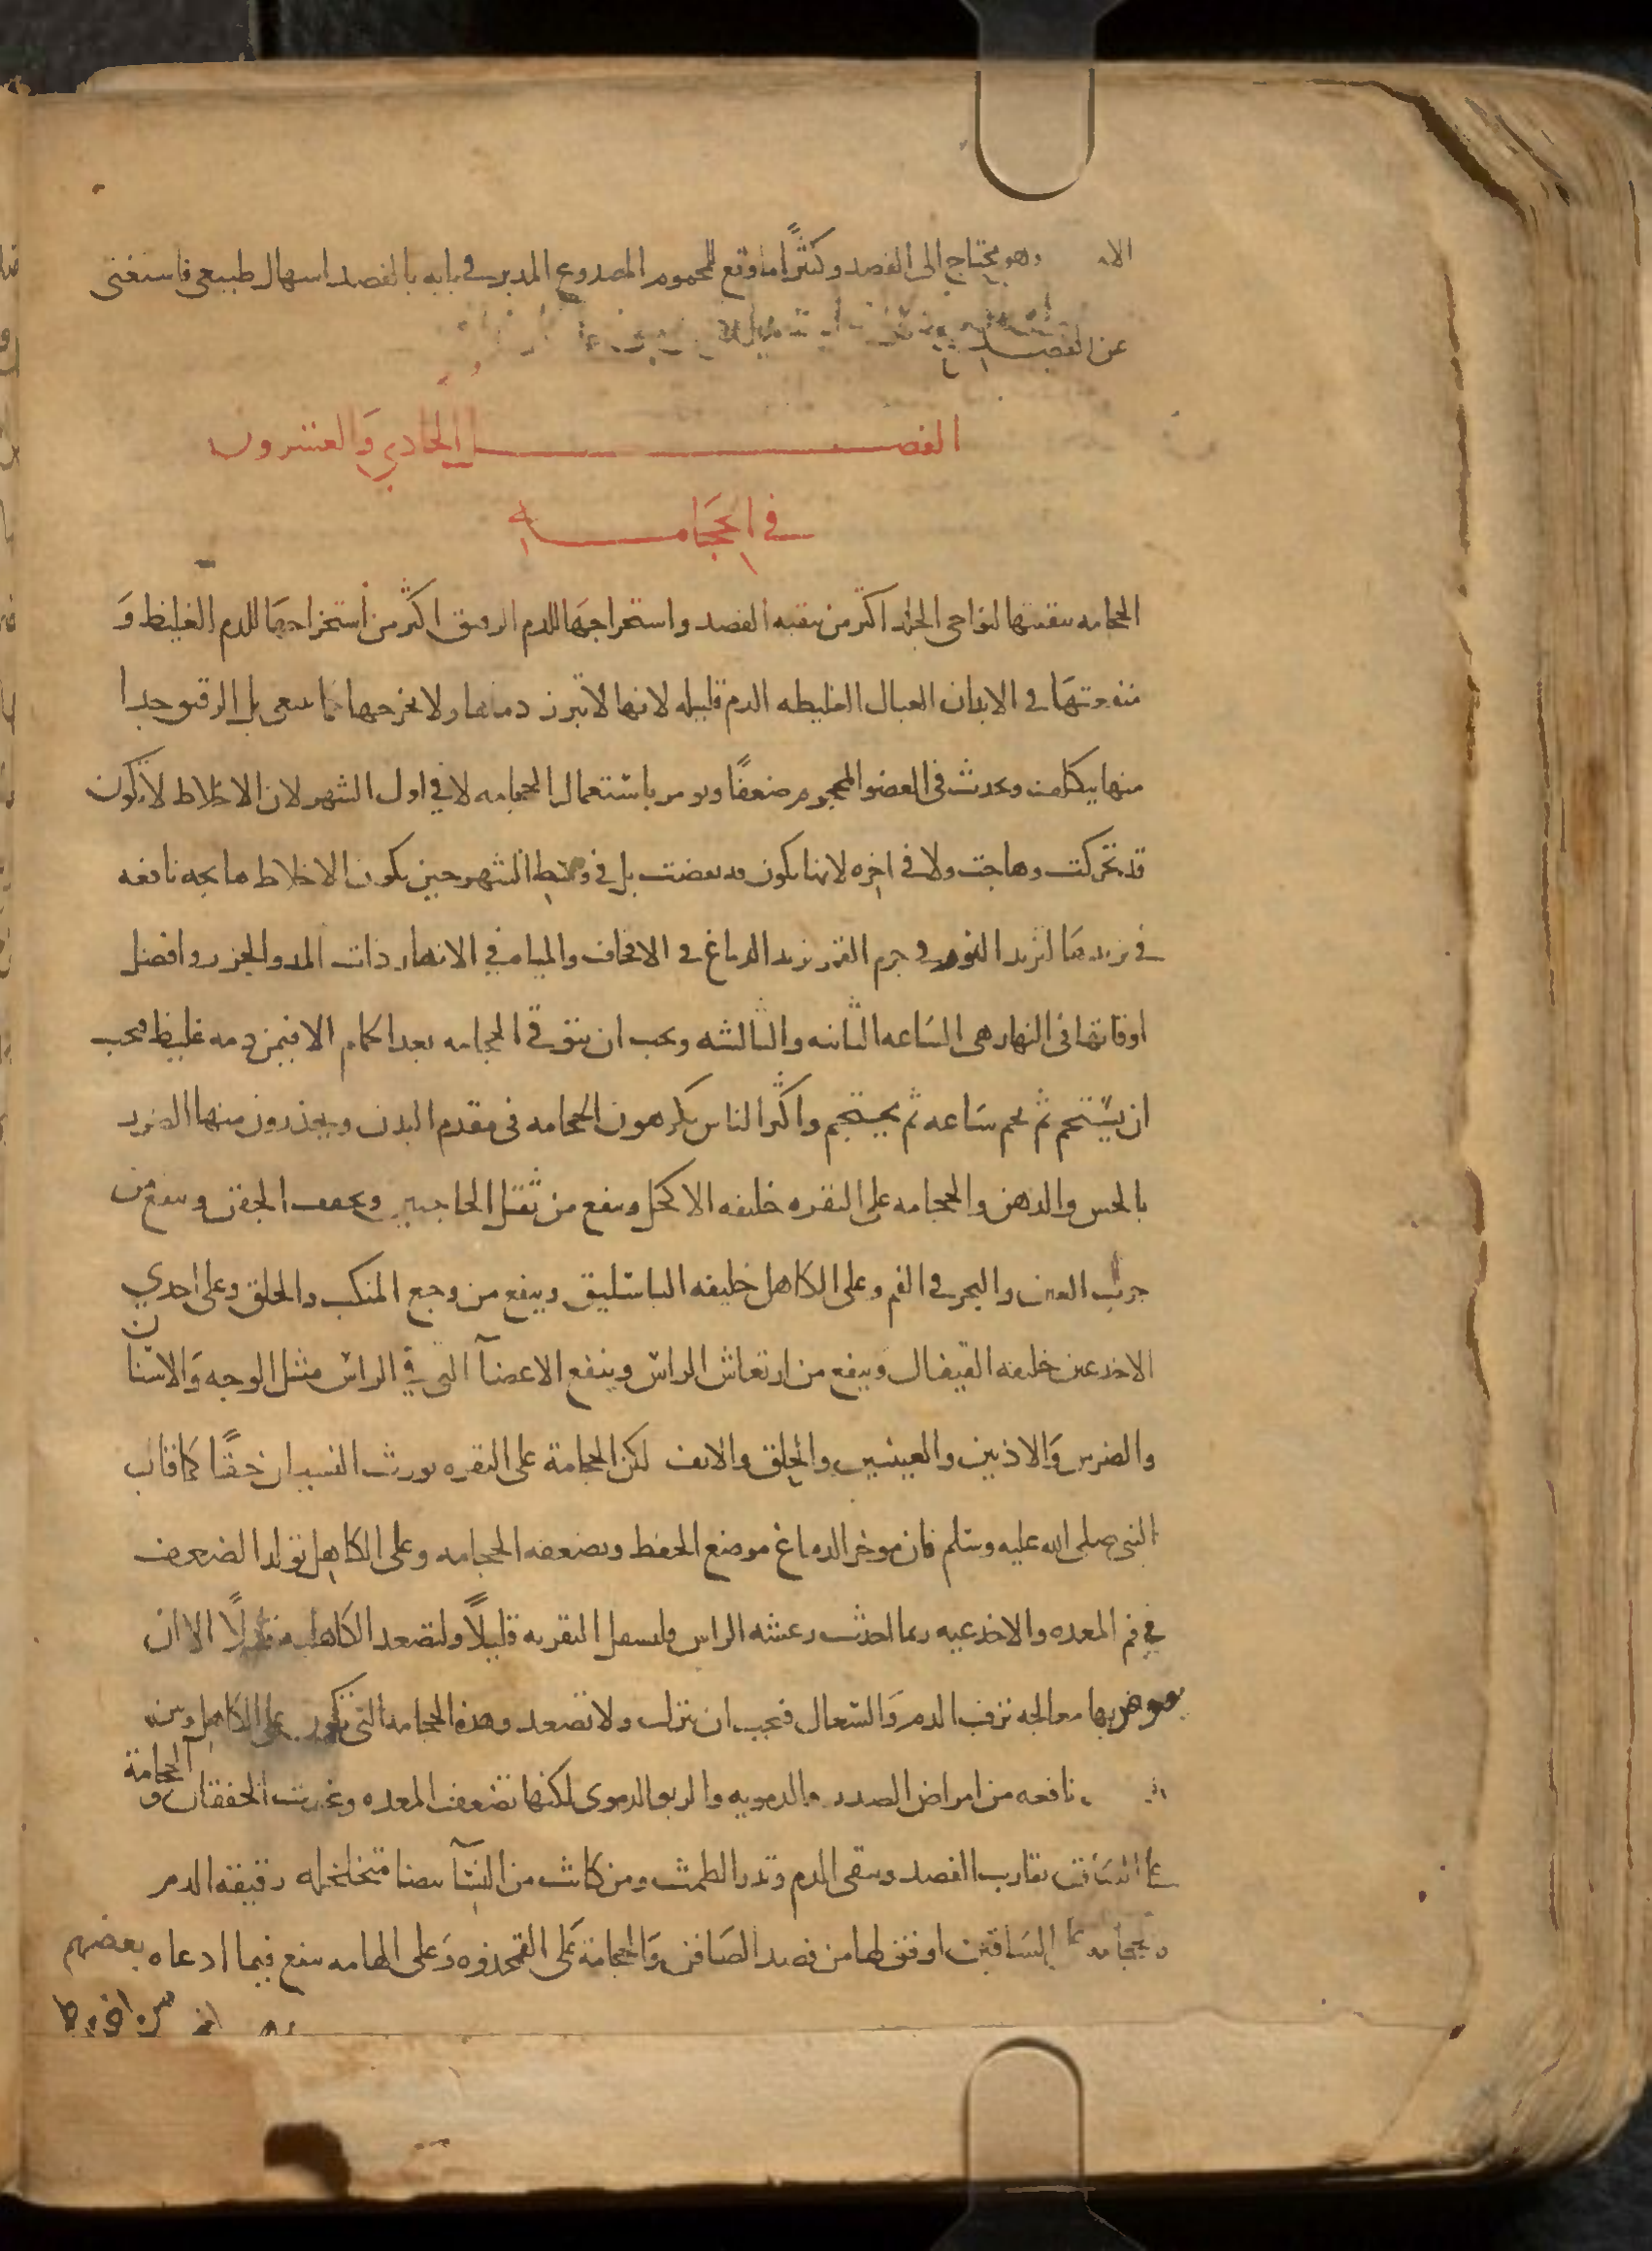 وهو يحتاج الى الفصد وكثيرًا ما وقع للمحموم المصدوع المدبر في بابه بالفصد اسهال طبيعى فاستغنى
عن الفصد
الفصل الحادي وَالعشرون
في الحجَامه
الحجامه تنقيتها لنواحى الجلد اكثر من تنقيه الفصد واستخراجهَا للدم الرقيق اكثر من استخراجهَا للدم الغليظ وَ
منفعتهَا في الابدان العبال الغليظه الدم قليله لانها لا تبرز دماها ولا تخرجها كما ينبغى بل الرقيق جدا
منها بتكلف وتحدث فى العضو المحجوم ضعفًا ويومر باستعمال الحجامه لا في اول الشهر لان الاخلاط لا تكون
قد تحركت وهاجت ولا في اخره لانها تكون قد نقصت بل في وسط الشهر حين تكون الاخلاط هايجه تابعه
في تزيدهَا لتزيد النور في جرم القمر يزيد الدماغ في الاقحاف والمياه في الانهار ذات المد والجزر وافضل
اوقاتها فى النهار هى السَاعه الثانيه والثالثه ويجب ان تتوقى الحجامه بعد الحمام الا فيمن دمه غليظ فيجب
ان يستحم ثم يجم سَاعه ثم يحتجم واكثر الناس يكرهون الحجامه فى مقدم البدن ويحذرون منها الضرر
بالحس والذهن والحجامه على النقره خليفه الاكحل وينفع من ثقل الحاجبين ويخفف الجفن وينفع من
جرب العين والبخر في الفم وعلى الكاهل خليفه الباسليق وينفع من وجع المنكب والحلق وعلى احدي
الاخدعين خليفه القيفال وينفع من ارتعاش الراس وينفع الاعضآ التى في الراس مثل الوجه وَالاسنان
والضرس وَالاذنين والعينين والحلق والانف لكن الحجامة على النقره يورث النسيان حقًا كما قال
النبى صلى الله عليه وسلم فان موخر الدماغ موضع الحفظ وتضعفه الحجامه وعلى الكاهل تولد الضعف
في فم المعده والاخدعيه ربما احدثت رعشه الراس فليسفل النقريه قليلًا ولتصعد الكاهليه قليلًا الا ان
بها معالجه نزف الدم وَالسعال فيجب ان تنزل ولا تصعد وهذه الحجامه التى تكون على الكاهل وبين
نافعه من امراض الصدر الدمويه والربو الدموى لكنها تضعف المعده وتحدث الخفقان والحجامة
على الساق تقارب الفصد وتنقى الدم وتدر الطمث ومن كانت من النسآ بيضا متخلخله رقيقه الدم
فحجامه السَاقين اوفق لها من فصد الصَافن وَالحجامة عَلى القمحدوه وَعلى الهامه ينفع فيما ادعاه بعضهم